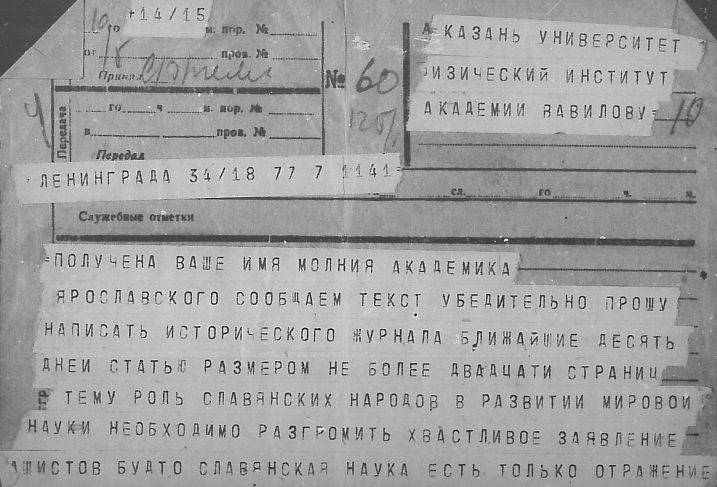 +14/15
го м. пор. №
от пров. №
Принял
№ 60
КАЗАНЬ УНИВЕРСИТЕТ
ФИЗИЧЕСКИЙ ИНСТИТУТ
АКАДЕМИИ ВАВИЛОВУ= 10
Передача
го ч. м. пор. №
в пров. №
Передал
ЛЕНИНГРАДА 34/18 77 7 1141=
сл. го ч. м.
Служебные отметки
=ПОЛУЧЕНА ВАШЕ ИМЯ МОЛНИЯ АКАДЕМИКА
ЯРОСЛАВСКОГО СООБЩАЕМ ТЕКСТ УБЕДИТЕЛЬНО ПРОШУ
НАПИСАТЬ ИСТОРИЧЕСКОГО ЖУРНАЛА БЛИЖАЙШИЕ ДЕСЯТЬ
ДНЕЙ СТАТЬЮ РАЗМЕРОМ НЕ БОЛЕЕ ДВАДЦАТИ СТРАНИЦ
ТЕМУ РОЛЬ СЛАВЯНСКИХ НАРОДОВ В РАЗВИТИИ МИРОВОЙ
НАУКИ НЕОБХОДИМО РАЗГРОМИТЬ ХВАСТЛИВОЕ ЗАЯВЛЕНИЕ
АШИСТОВ БУДТО СЛАВЯНСКАЯ НАУКА ЕСТЬ ТОЛЬКО ОТРАЖЕНИЕ